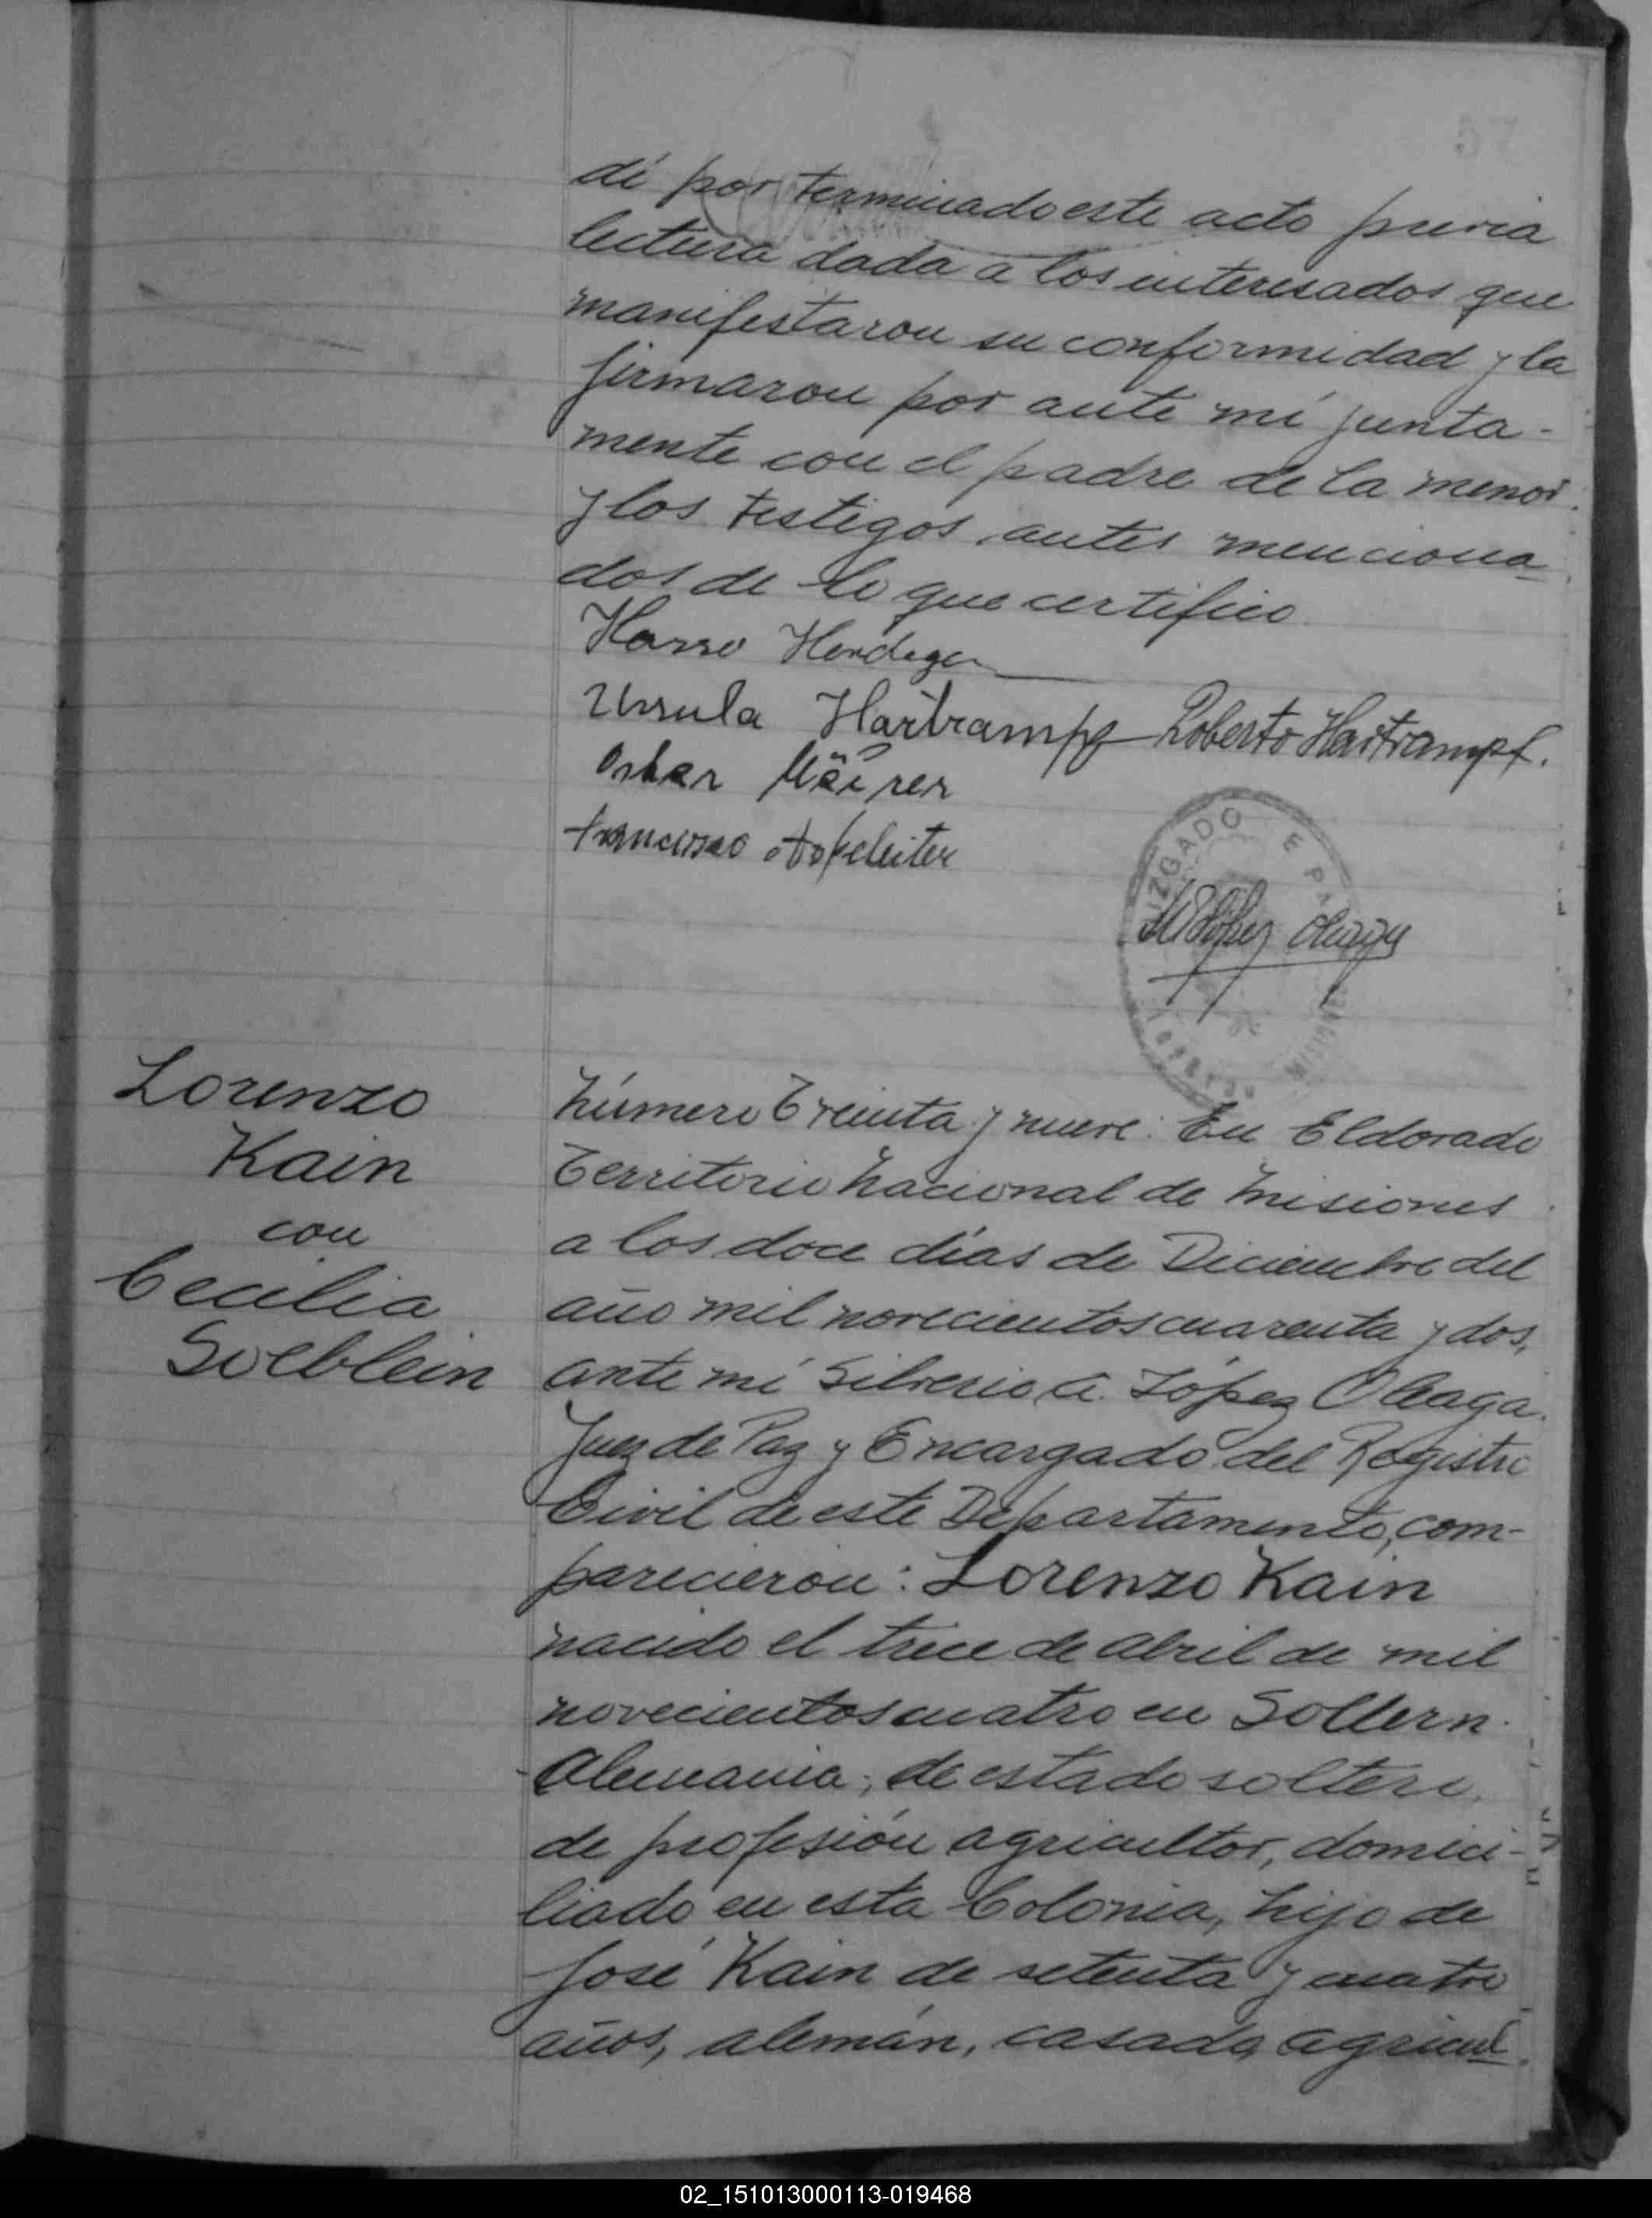 dí por terminado este acto previa
lectura dada a los interesados que
manifestaron su conformidad y la
firmaron por ante mí junta-
mente con el padre de la menor
y los testigos antes menciona
dos de lo que certifico
Ursula Hartrampf Roberto Hartrampf.
Oskar
Francisco
JUZGADO E PA
López Oleaga
Lorenzo
Kain
con
Cecilia
Soelblein
Número Treinta y nueve: En Eldorado
Territorio Nacional de Misiones
a los doce días de Diciembre del
año mil novecientos cuarenta y dos,
ante mí Silverio A. López Oleaga
Juez de Paz y Encargado del Registro
Civil de este Departamento, com-
parecieron: Lorenzo Kain
nacido el trece de abril de mil
novecientos cuatro en Sollern
Alemania; de estado soltero,
de profesión agricultor, domici-
liado en esta Colonia, hijo de
José Kain de setenta y cuatro
años, alemán, casado, agricul
02_151013000113-019468